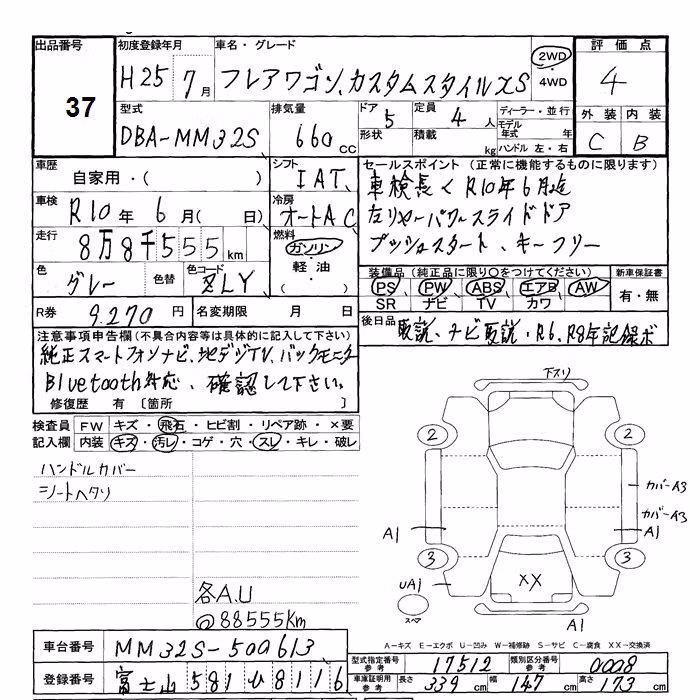 出品番号
37
初度登録年月
H25年7月
車名・グレード
フレアワゴン、カスタムスタイルXS
2WD
・
4WD
評価点
4
外装 内装
C B
型式
DBA-MM32S
排気量
660cc
ドア
5
形状
定員
4人
積載 kg
ディーラー・並行
モデル
年式 年
ハンドル 左・右
車歴
自家用・( )
シフト
IAT
セールスポイント (正常に機能するものに限ります)
車検長くR10年6月迄
左リヤーパワースライドドア
プッシュスタート、キーフリー
車検
R10年 6月( 日)
冷房
オートAC
走行
8万8千555km
燃料
ガソリン
・
軽油
・
( )
色
グレー
色替
色コード
ZLY
装備品 (純正品に限り○をつけてください)
PS PW ABS エアB AW
SR ナビ TV カワ
新車保証書
有・無
R券
9.270円
名変期限 月 日
後日品
取説、ナビ取説・R6、R8年記録ボ
注意事項申告欄(不具合内容等は具体的に記入して下さい)
純正スマートフォンナビ、地デジTV、バックモニター
Bluetooth対応、確認して下さい。
修復歴 有 〔箇所 〕
検査員
記入欄
FW キズ・飛石・ヒビ割・リペア跡・×要
内装 キズ・汚レ・コゲ・穴・スレ・キレ・破レ
ハンドルカバー
シートヘタリ
各A.U
@88555Km
下スリ
2
2
カバーA3
カバーA3
A1
A1
3
3
UA1
スペア
XX
A1
A-キズ E-エクボ U-凹み W-補修跡 S-サビ C-腐食 XX-交換済
車台番号
MM32S-500613
登録番号
富士山 581 ひ 8116
型式指定番号
参考
17512
類別区分番号
参考
0008
車庫証明用
参考
長さ 339cm 幅 147cm 高さ 173cm